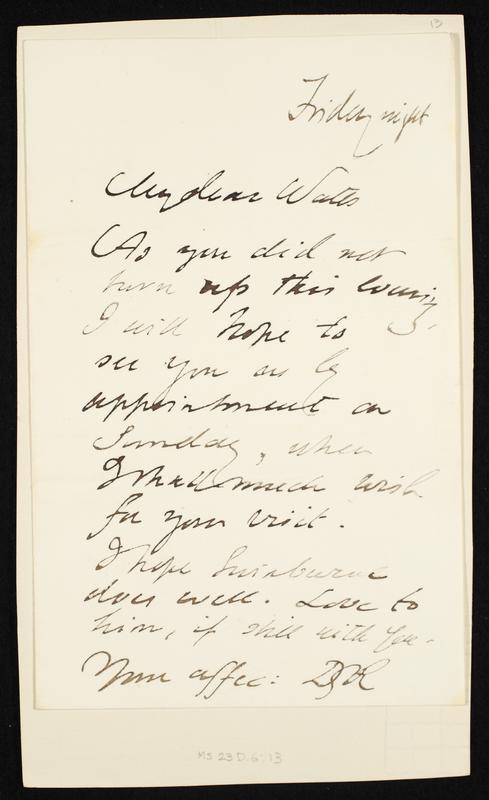 13
Friday night
My dear Watts
As you did not
turn up this evening,
I will hope to
see you as by
appointment on
Sunday, when
I shall much wish
for your visit.
I hope Swinburne
does well. Love to
him, if still with you.
Your affec: DGR
MS 23 D.6:13